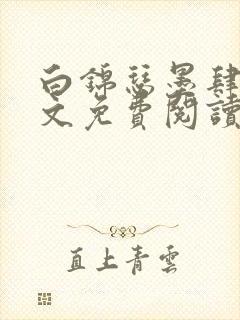 白錦瑟墨肆
文免費閱讀
直上青雲